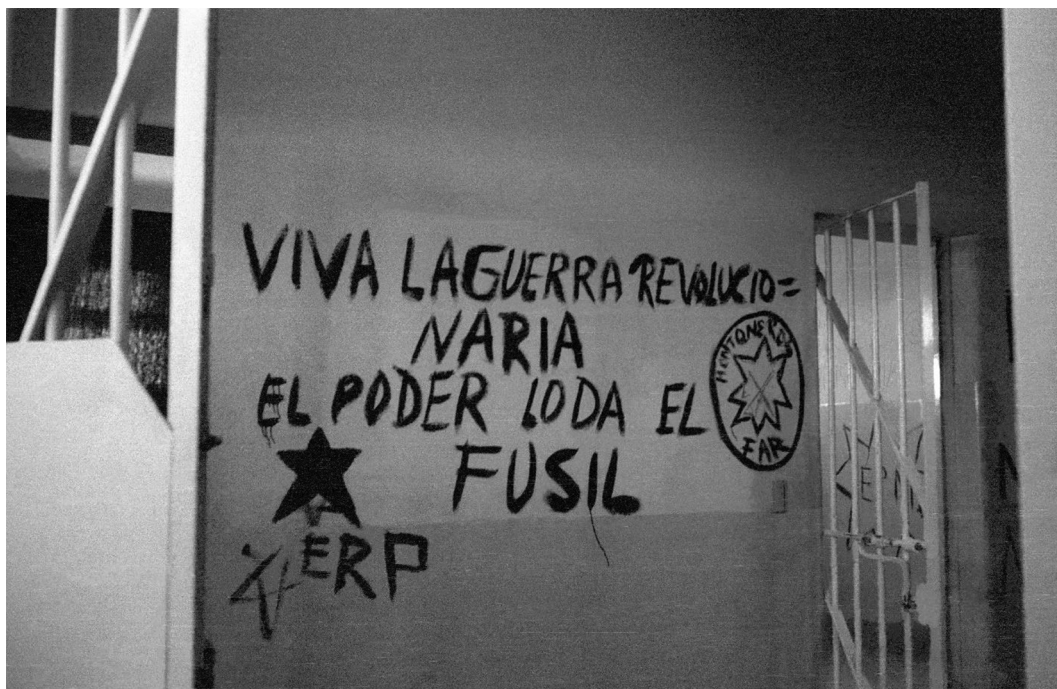 VIVA LAGUERRA REVOLUCIO=
NARIA
EL PODER LO DA EL
FUSIL
MONTONEROS
FAR
ERP